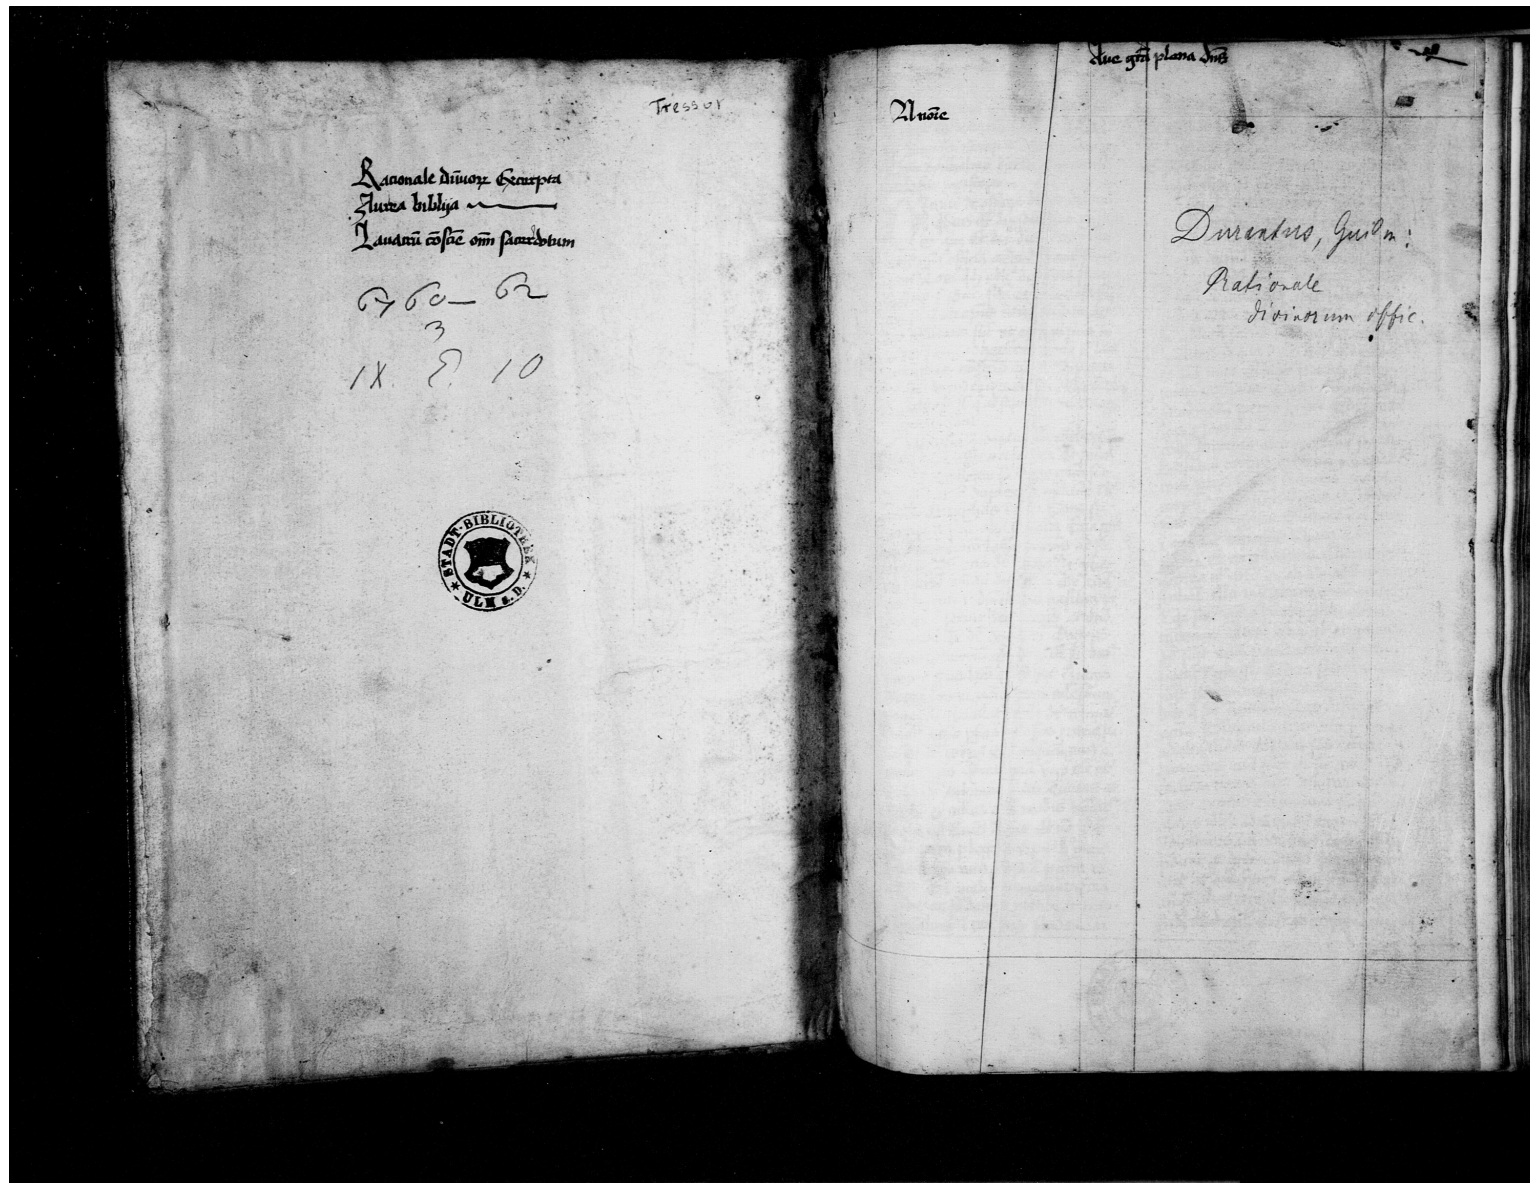 Tressor
Racionale diuīorꝝ Excerpta
Aurea biblija
Lauacrū cōsciē om̄ sacerdotum
6760— 62
3
IX. E. 10
STADT-BIBLIOTHEK
ULM a. D.
Aue grā plena dn̄s
Durantus, Guilm:
Rationale
divinorum offic.